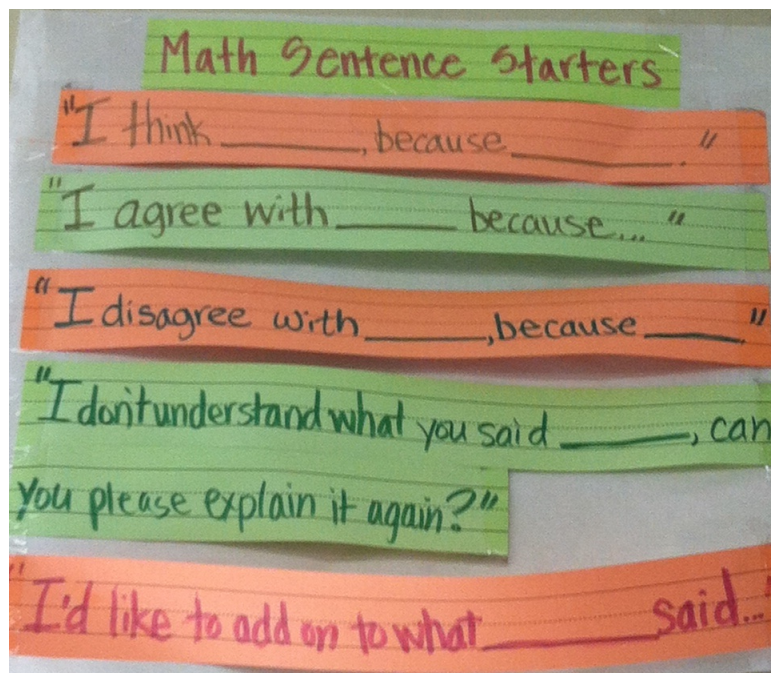 Math Sentence Starters
"I think ______, because ______."
"I agree with ______ because... "
"I disagree with ______, because ______."
"I don't understand what you said ______, can
you please explain it again?"
"I'd like to add on to what ______ said..."